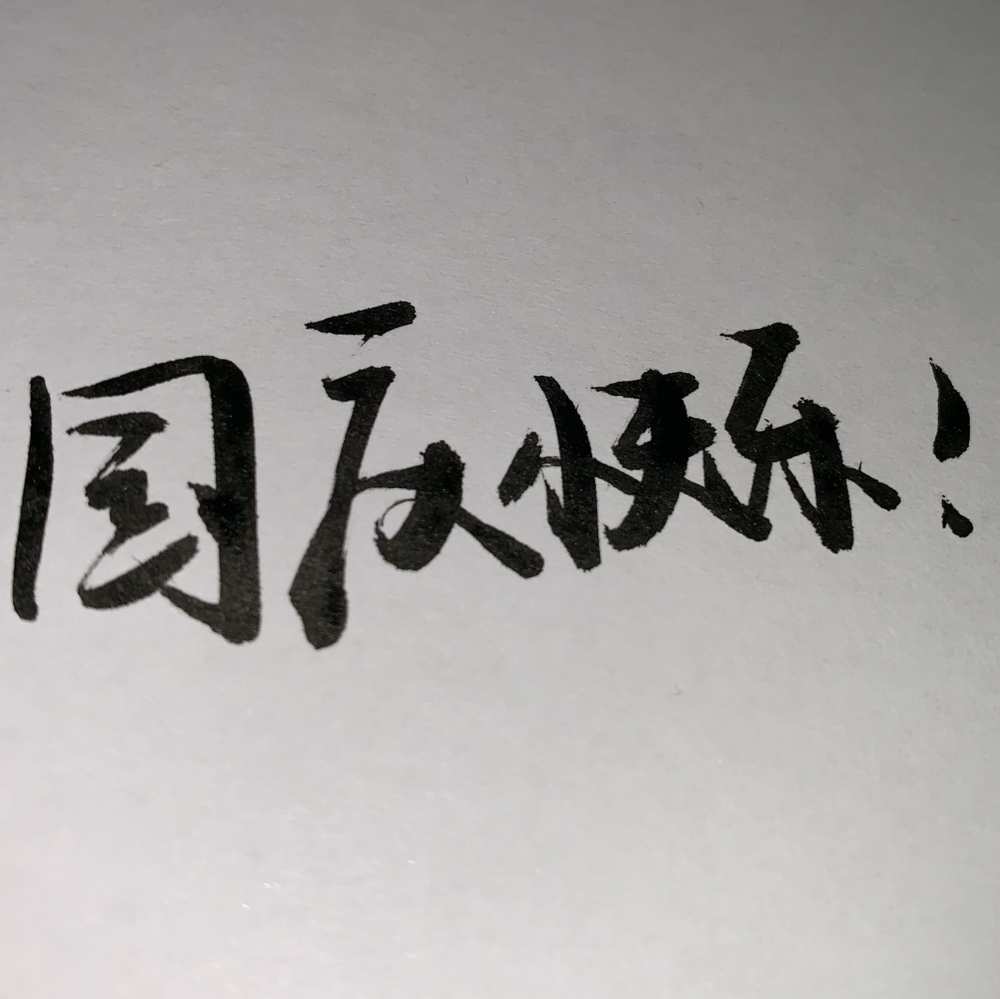 国庆快乐！